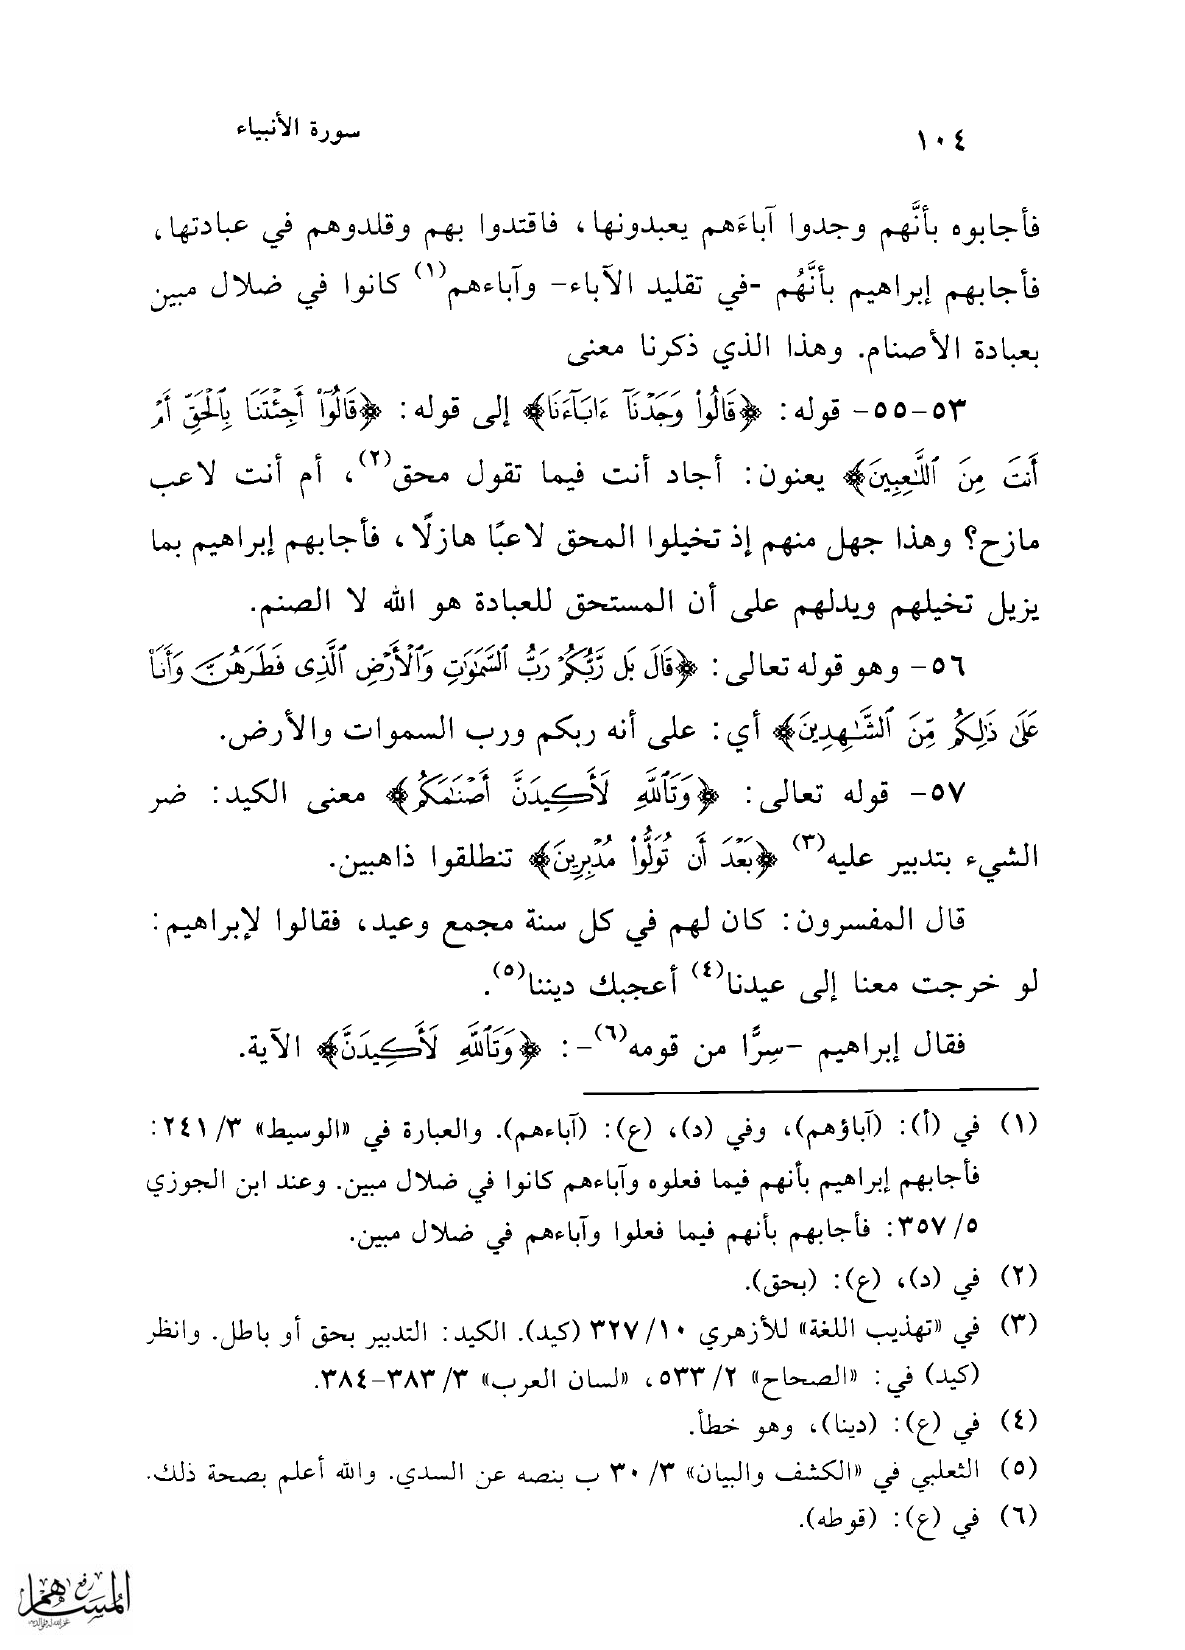 ١٠٤ سورة الأنبياء
فأجابوه بأنَّهم وجدوا آباءَهم يعبدونها، فاقتدوا بهم وقلدوهم في عبادتها،
فأجابهم إبراهيم بأنَّهُم -في تقليد الآباء- وآباءهم(١) كانوا في ضلال مبين
بعبادة الأصنام. وهذا الذي ذكرنا معنى
٥٣-٥٥- قوله: ﴿قَالُوا۟ وَجَدْنَآ ءَابَآءَنَا﴾ إلى قوله: ﴿قَالُوٓا۟ أَجِئْتَنَا بِٱلْحَقِّ أَمْ
أَنتَ مِنَ ٱللَّـٰعِبِينَ﴾ يعنون: أجاد أنت فيما تقول محق(٢)، أم أنت لاعب
مازح؟ وهذا جهل منهم إذ تخيلوا المحق لاعبًا هازلًا، فأجابهم إبراهيم بما
يزيل تخيلهم ويدلهم على أن المستحق للعبادة هو الله لا الصنم.
٥٦- وهو قوله تعالى: ﴿قَالَ بَل رَّبُّكُمْ رَبُّ ٱلسَّمَـٰوَٰتِ وَٱلْأَرْضِ ٱلَّذِى فَطَرَهُنَّ وَأَنَا۠
عَلَىٰ ذَٰلِكُم مِّنَ ٱلشَّـٰهِدِينَ﴾ أي: على أنه ربكم ورب السموات والأرض.
٥٧- قوله تعالى: ﴿وَتَٱللَّهِ لَأَكِيدَنَّ أَصْنَـٰمَكُم﴾ معنى الكيد: ضر
الشيء بتدبير عليه(٣) ﴿بَعْدَ أَن تُوَلُّوا۟ مُدْبِرِينَ﴾ تنطلقوا ذاهبين.
قال المفسرون: كان لهم في كل سنة مجمع وعيد، فقالوا لإبراهيم:
لو خرجت معنا إلى عيدنا(٤) أعجبك ديننا(٥).
فقال إبراهيم -سِرًّا من قومه(٦)-: ﴿وَتَٱللَّهِ لَأَكِيدَنَّ﴾ الآية.
(١) في (أ): (آباؤهم)، وفي (د)، (ع): (آباءهم). والعبارة في «الوسيط» ٣/ ٢٤١:
فأجابهم إبراهيم بأنهم فيما فعلوه وآباءهم كانوا في ضلال مبين. وعند ابن الجوزي
٥/ ٣٥٧: فأجابهم بأنهم فيما فعلوا وآباءهم في ضلال مبين.
(٢) في (د)، (ع): (بحق).
(٣) في «تهذيب اللغة» للأزهري ١٠/ ٣٢٧ (كيد). الكيد: التدبير بحق أو باطل. وانظر
(كيد) في: «الصحاح» ٢/ ٥٣٣، «لسان العرب» ٣/ ٣٨٣-٣٨٤.
(٤) في (ع): (دينا)، وهو خطأ.
(٥) الثعلبي في «الكشف والبيان» ٣/ ٣٠ ب بنصه عن السدي. والله أعلم بصحة ذلك.
(٦) في (ع): (قوطه).